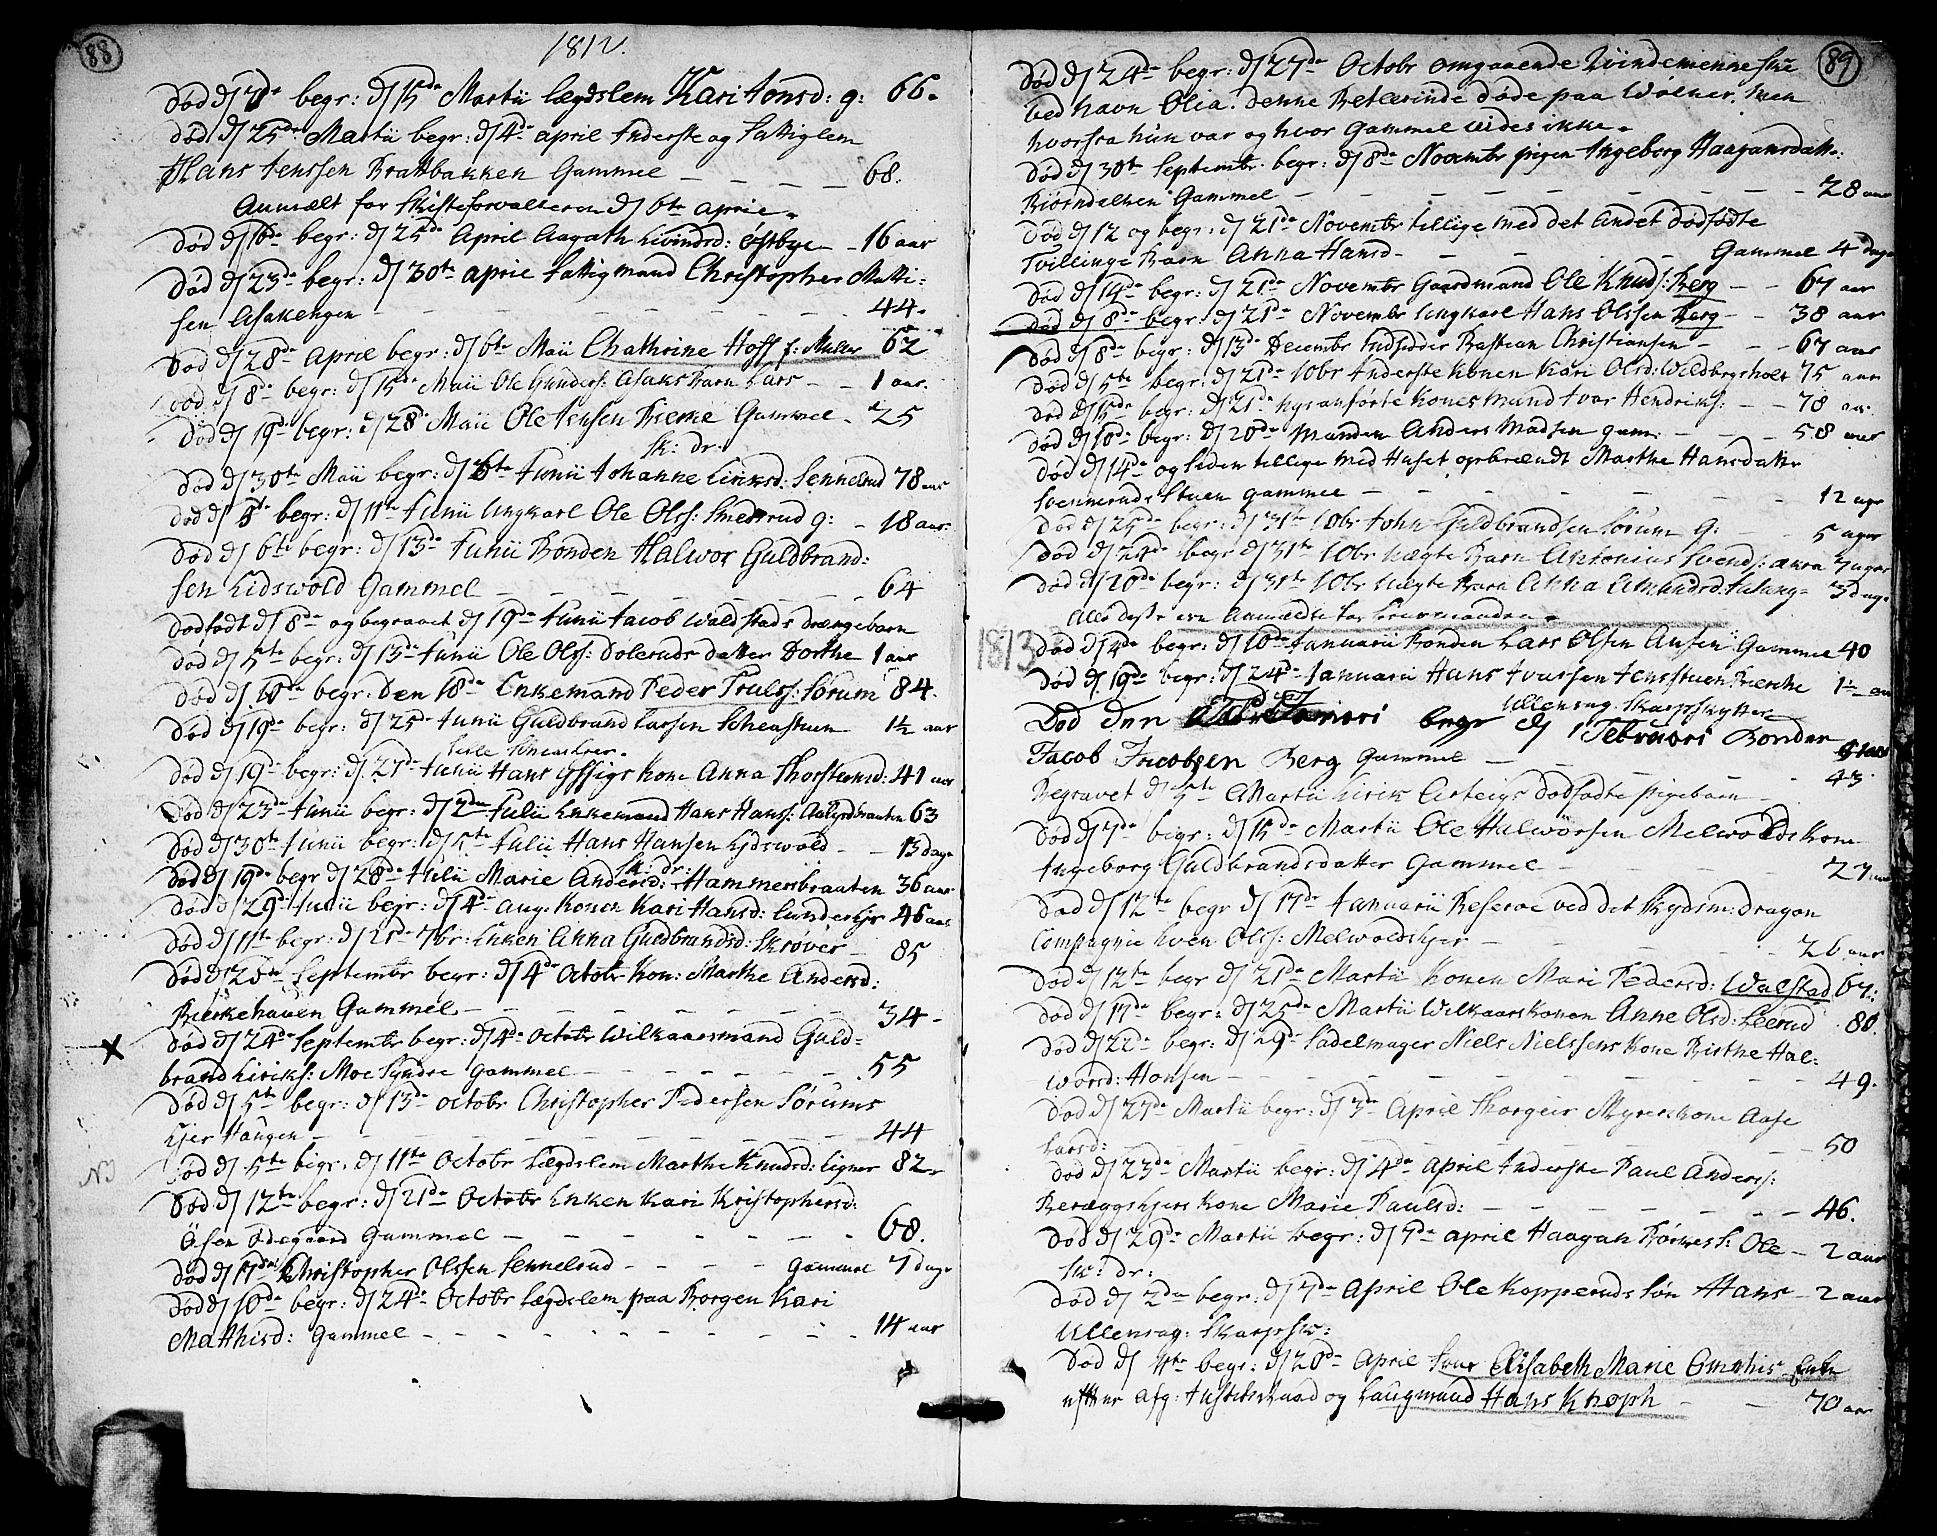 88
1812.
Død d. 7de begr: d. 15de Martii Lægdslem Kari Tonsd: g: 66.
Død d. 25de Martii begr: d. 4de april Inderste og Fattiglem
Hans Jenssen Brattbakken Gammel — — — — 68.
Anmælt for Skifteforvalteren d. 6te april.
Død d. 16de begr: d. 25de April Aagath Eivindsd: Østbye — 16 aar
Død d. 23de begr: d. 30te april Fattigmand Christopher Matti-
sen Asakengen — — — — — 44.
Død d. 28de April begr: d. 6te Maii Chathrine Hoff f: Muller 62
Død d. 8de begr: d. 15de Maii Ole Gunders: Asaks Barn Lars — 1 aar.
Død d. 19de begr: d. 28 Maii Ole Jensen Bierke Gammel — 25
Sk: dr:
Død d. 30te Maii begr: d. 6te Junii Johanne Eriksd: Sennerud 78 aar
Død d. 5te begr: d. 11te Junii Ungkarl Ole Olss: Smedsrud g: — 18 aar.
Død d. 6te begr: d. 13de Junii Bonden Halwor Guldbrand:
sen Eidswold Gammel — — — — 64
Dødfødt d. 8de og begravet d. 19de Junii Jacob Waldstads drængebarn
Død d. 5te begr: d. 13de Junii Ole Olss: Døleruds datter Dorthe 1 aar
Død d. 10de begr: den 18de Enkemand Peder Truls: Sørum 84.
Død d. 19de begr: d. 25de Junii Guldbrand Larsen 1½ aar
Død d. 19de begr: d. 27de Junii Hans Kone Anna Thorstensd: 41 aar
Død d. 23de Junii begr: d. 2den Julii Enkemand Hans Hans: 63
Død d. 30te Junii begr: d. 5te Julii Hans Hansen Eidswold — 13 dage
Sk: dr:
Død d. 19de begr d. 28de Julii Marie Andersd: Hammersbraaten 36 aar
Død d. 29de Julii begr: d. 4de aug. Konen Kari Hansd: 46 aar
Død d. 11te begr: d. 25de 7br: Enken Anna Guldbrandsd: Skrøver — 85
Død d. 25de Septembr begr: d. 4de Octobr Kon: Marthe Andersd:
Bierkehauen Gammel — — — — 34 —
X Død d. 24de Septembr begr: d. 4de Octobr Wilkaarsmand Guld=
brand Eiriks: Moe Syndre gammel — — — — 55
Død d. 5te begr: d. 13de Octobr Christopher Pedersen Sørums
Ejer Haugen — — — — 44
Død d. 5te begr. d. 11te Octobr Lægdslem Marthe Knudsd: Eigner 82.
Død d. 12te begr: d. 21de Octobr Enken Kari Kristophersd:
Åsen Ødegaard Gammel — — — — 68.
Død d. 17de Christopher Olssen Sennerud — — — Gammel 7 dage
Død d. 10de begr: d. 24de Octobr Lægdslem paa Borgen Kari
Mathisd: Gammel — — — — 14 aar
89
Død d. 24de begr: d. 27de Octobr omgaaende Qvindemenneske
ved navn Olia. denne Betlerinde døde paa Wølner, men
hvorfra hun var og hvor Gammel vides ikke.
Død d. 30te Septembr. begr: d. 8de Novembr pigen Ingeborg Haagansdatt.
Biørndalen Gammel — — — — 28 aar
Død d. 12 og begr: d. 21de Novembr tillige med det andet dødfødte
Tvillinge Barn Anna Hansd — — — Gammel 4 dage
Død d. 14de begr: d. 21de Novembr Gaardmand Ole Knuds: Berg — 67 aar
Død d. 8de begr: d. 21de Novembr Ungkarl Hans Olssen Berg — 38 aar
Død d. 8de begr: d. 13de Decembr Indsidder Bastean Christiansen — 67 aar
Død d. 5te begr: d. 21de 10br Inderste Konen Kari Olsd: 75 aar
Død d. 15de begr: d. 21de mand Ivar Hendriks: — 78 aar.
Død d. 10de begr: d. 20de Manden Anders Madsen gam: — — 58 aar
Død d. 14de og siden tillige med Huset opbrændt Marthe Hansdatter
Svenneruds Stuen gammel — — — — 12 uger
Død d. 25de begr: d. 31te 10br John Guldbrandsen Sørum g: — 5 uger
Død d. 24de begr d. 31te 10br Uægte Barn Antonius Svends: 7 uger
Død d. 20de begr: d. 31te 10br Uægte Barn Anna Amundsd: — 3 dage
Alle disse ere Anmældte for Sorenmanden.
1813 Død d. 4de begr: d. 10de Januarii Bonden Lars Olsen Aasen Gammel 40
Død d. 19de begr: d. 24de Januarii Hans Ivarssen Jensstuen Bierche 1½ aar
Ullensag. Skarpskytter
Død den begr d. 1 Februari Bonden
Jacob Jacobsen Berg Gammel — — 43
Begravet d. 5te Martii Eirik Arteigs dødfødte pigebarn —
Død d. 7de begr: d. 15de Martii Ole Halworsen Melwolds Kone
Ingeborg Guldbrandsdatter Gammel — — 27 aar
Død d. 12te begr d. 17de Januarii Reserve ved det Akydsm: dragon
Compagnie Even Olss: Melwoldsejer — — — 26 aar
Død d. 12te begr d. 21de Martii Konen Mari Pedersd: Walstad 67:
Død d. 17de begr: d. 25de Martii Wilkaarskonen Anne Olsd: Leerud 80.
Død d. 22de begr: d. 29de Sadelmager Niels Nielssens Kone Birthe Hal-
worsd: Honsen — — — — 49.
Død d. 27de Martii begr: d. 3de April Thorgeir Myrers Kone Aase
Larsd: — — — — 50
Død d. 23de Martii begr: d. 4de April Inderste Paul Anders:
Berøggsejers Kone Marie Paulsd: — — — — 46.
Død d. 29de Martii begr: d. 7de april Haagan S: Ole — 2 aar
Sk: dr:
Død d. 2den begr: d. 7de April Ole Kopperuds søn Hans — 2 aar
Ullensag: Skarpsk:
Død d. 11te begr: d. 20de April Frue Elisabeth Marie Enke
efter afg: Justitsraad og Laugmand Hans Knoph — — 70 aar